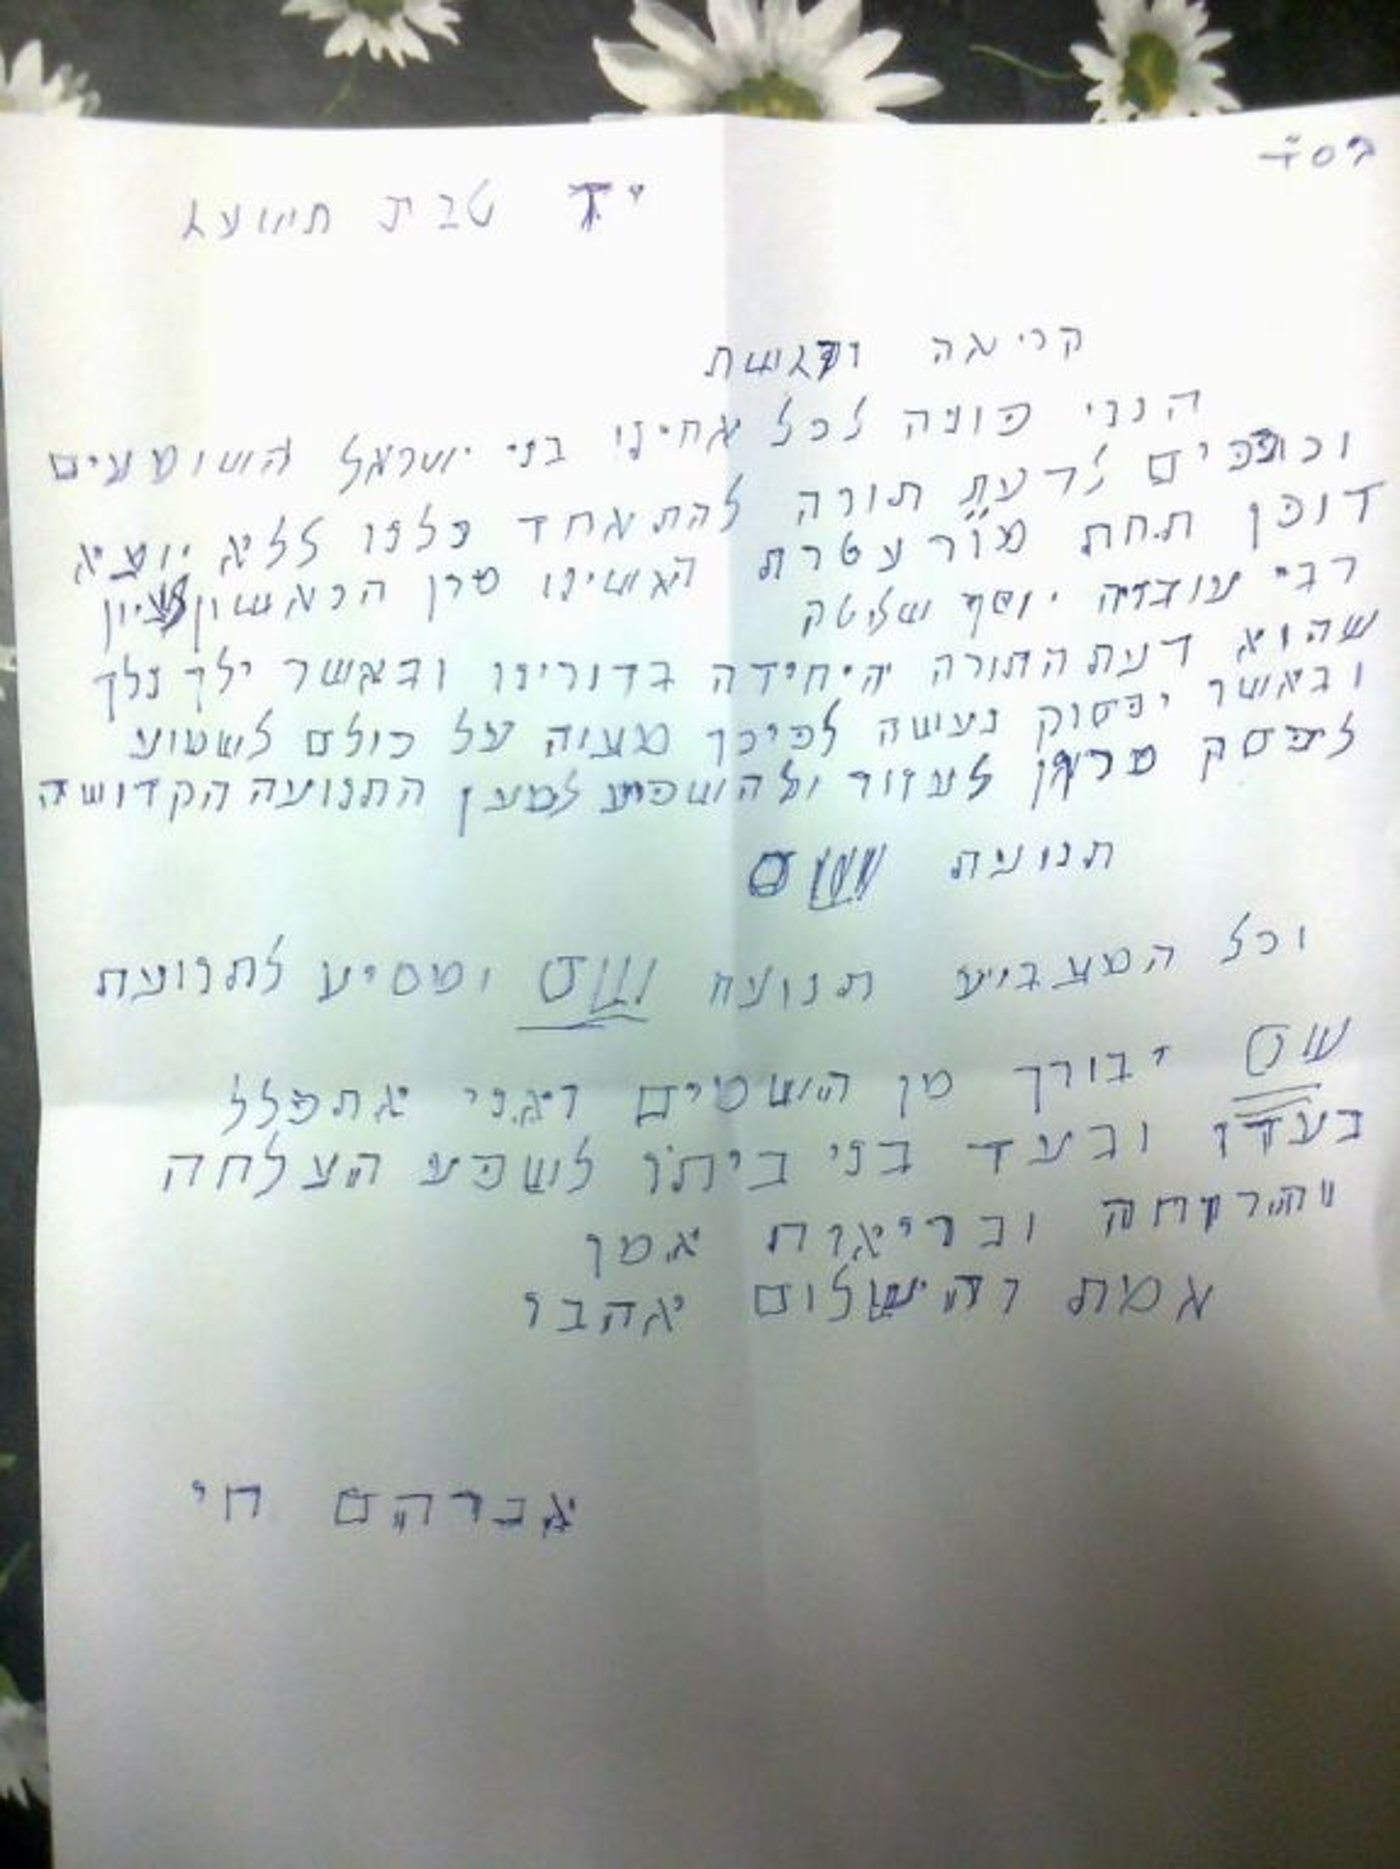 בסד
יד טבת תשעג
קריאה נרגשת
הנני פונה לכל אחינו בני ישראל השומעים
וכופפים לדעת תורה להתאחד כלנו ללא יוצא
דופן תחת מור עטרת ראשינו מרן הראשון לציון
רבי עובדיה יוסף שליטא
שהוא דעת התורה היחידה בדורינו ובאשר ילך נלך
ובאשר יפסוק נעשה לפיכך מצוה על כולם לשמוע
לפסק מרן לעזור ולהשפיע למען התנועה הקדושה
תנועת שס
וכל המצביע תנועת שס ומסיע לתנועת
שס יבורך מן השמים ואני אתפלל
בעדו ובעד בני ביתו לשפע הצלחה
והרוחה ובריאות אמן
אמת והשלום אהבו
אברהם חי